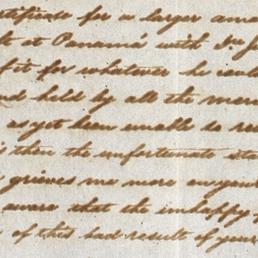 tificate for a larger amo
lt at Panamá with Dn Ju
fit for whatever he coul
nd held by all the mer
as yet been unable to re
is then the unfortunate sta
grieves me more on your
aware that the unhappy
of this bad result of your